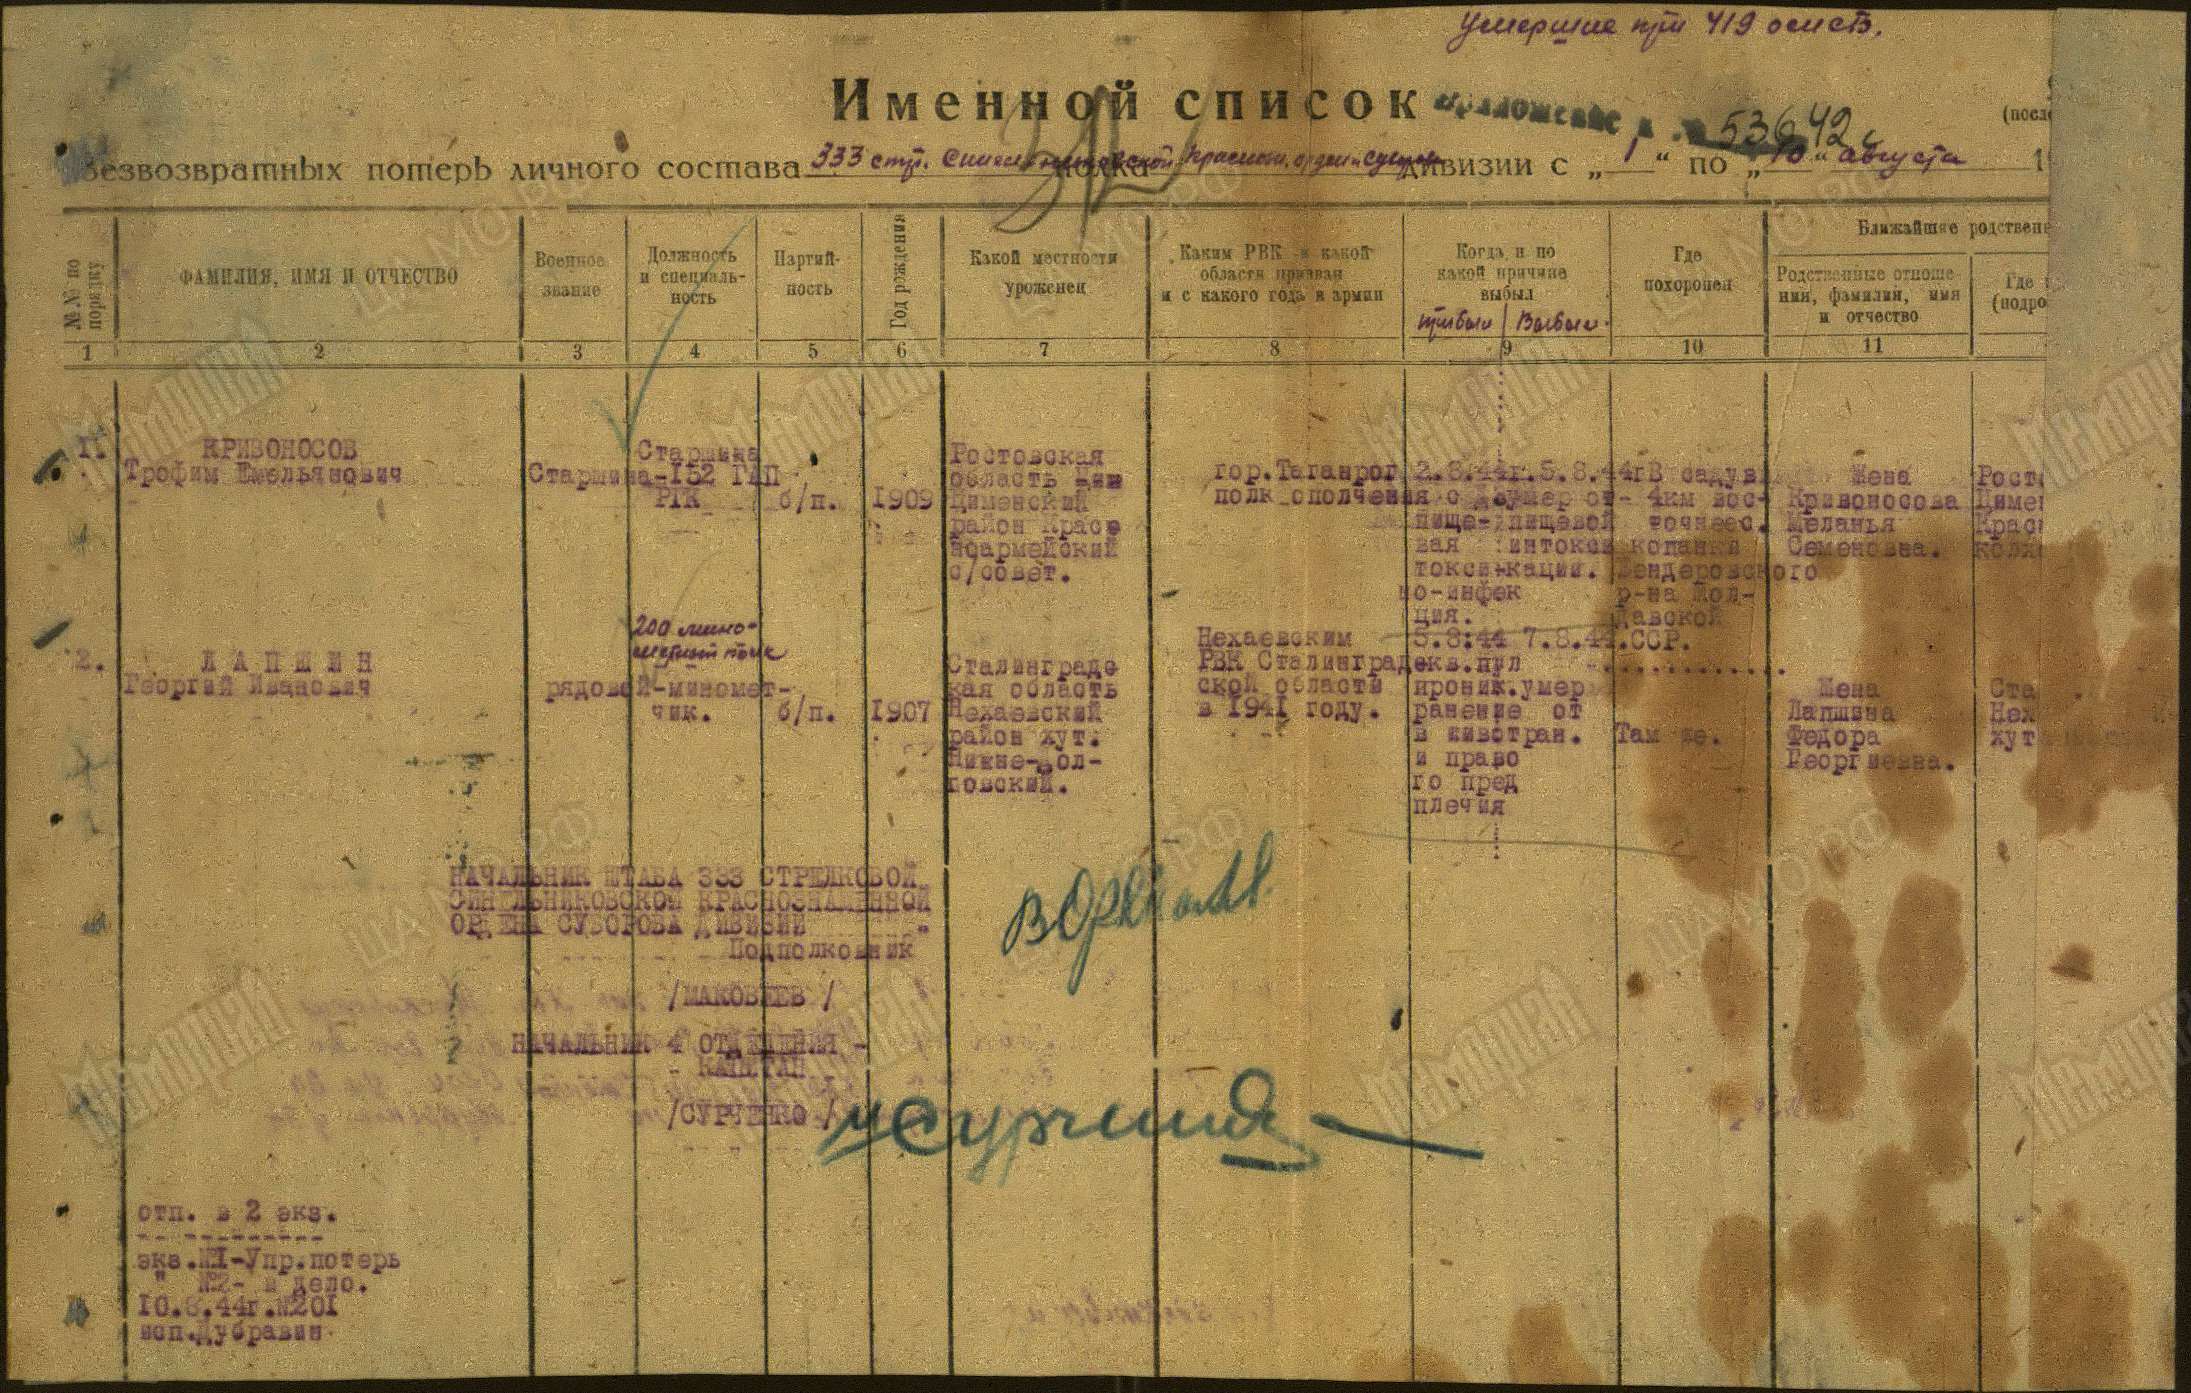 Умершие при 419 омсб.
Именной список
Приложение к № 53642с
безвозвратных потерь личного состава 333 стр. Синельниковской Краснозн. орден. Суворова полка дивизии с „1“ по „10“ августа
№ № по порядку
ФАМИЛИЯ, ИМЯ И ОТЧЕСТВО
Военное звание
Должность и специаль-ность
Партий-ность
Год рождения
Какой местности уроженец
Каким РВК и какой области призван и с какого года в армии
Когда и по какой причине выбыл
прибыл Выбыл.
Где похоронен
Ближайшие родствен
Родственные отноше-ния, фамилия, имя и отчество
Где
(подро
(посл
1 2 3 4 5 6 7 8 9 10 11
1.
КРИВОНОСОВ
Трофим Емельянович
Старшина
Старшина-152 ГАП
РГК
б/п.
1909
Ростовская
область
Цименский
район Красо
ноармейский
с/совет.
гор.Таганрог
полк ополчения с
2.8.44г.
пище-
вая
токси-
но-инфек
ция.
5.8.44г
умер от
пищевой
интокси
кации.
В саду
4км вос-
точнее с.
копанки
Бендеровского
р-на Мол-
давской
ССР.
Жена
Кривоносова
Меланья
Семеновна.
Рост
Циме
Крас
колх
2.
Л А П Ш И Н
Георгий Иванович
рядовой
200 мино-
метный полк
-миномет-
чик.
б/п.
1907
Сталинградс
кая область
Нехаевский
район хут.
Нижне-Дол-
говский.
Нехаевским
РВК Сталинград
ской области
в 1941 году.
5.8.44
скв.пул
проник.
ранение
в живот
и право
го пред
плечия
7.8.44.
умер
от
ран.
Там же.
Жена
Лапшина
Федора
Георгиевна.
Ста
Нех
хут
НАЧАЛЬНИК ШТАБА 333 СТРЕЛКОВОЙ
СИНЕЛЬНИКОВСКОЙ КРАСНОЗНАМЕННОЙ
ОРДЕНА СУВОРОВА ДИВИЗИИ
Подполковник
/МАКОВЕЕВ /
НАЧАЛЬНИК 4 ОТДЕЛЕНИЯ -
КАПИТАН
/СУРЧЕНКО /
отп. в 2 экз.
экз.№1-Упр.потерь
" №2- в дело.
10.8.44г.№201
исп.Дубравин
ЦАМО РФ
Мемориал